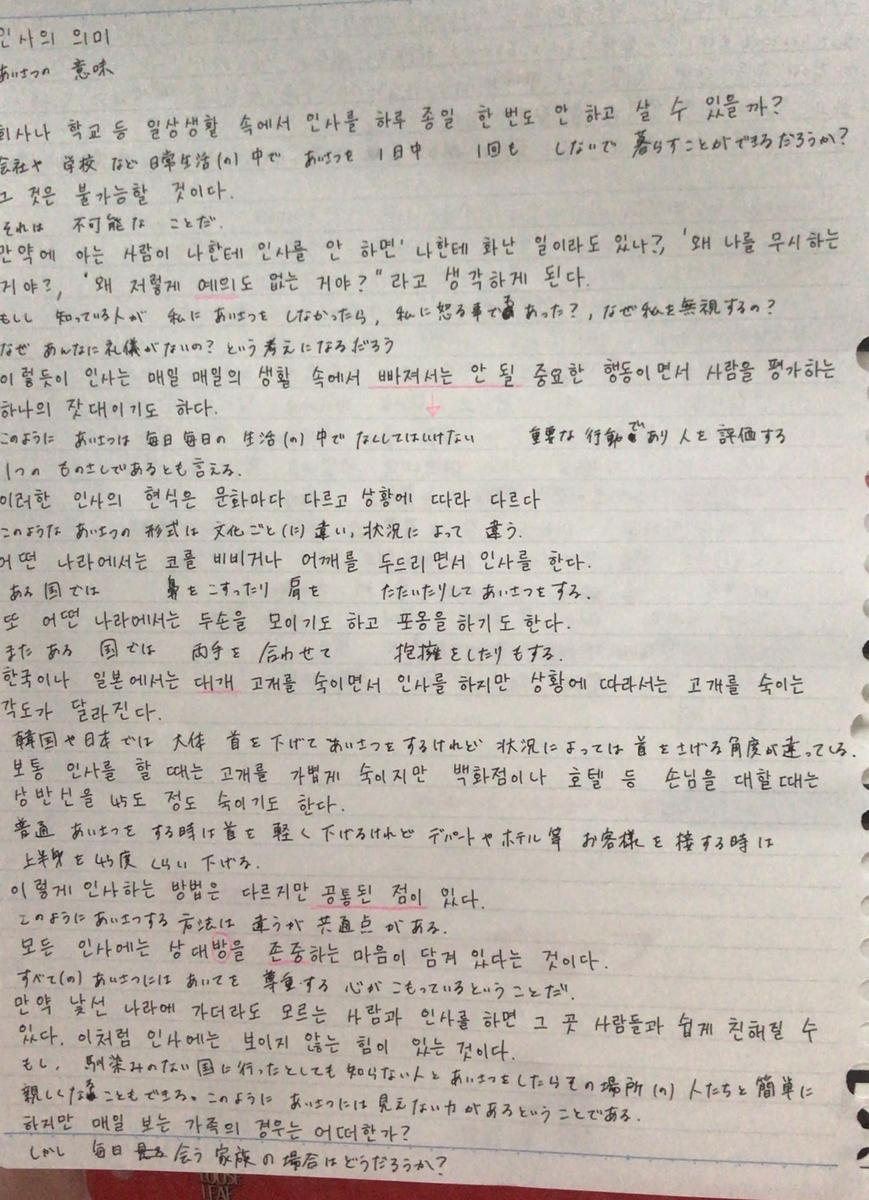 인사의 의미
あいさつの 意味
회사나 학교 등 일상생활 속에서 인사를 하루 종일 한 번도 안 하고 살 수 있을까?
会社や 学校 など 日常生活(の) 中で あいさつを 1日中 1回も しないで 暮らすことができるだろうか?
그 것은 불가능할 것이다.
それは 不可能な ことだ.
만약에 아는 사람이 나한테 인사를 안 하면 '나한테 화난 일이라도 있나?, '왜 나를 무시하는
거야?, "왜 저렇게 예의도 없는 거야?"라고 생각하게 된다.
もしし 知っている人が 私に あいさつを しなかったら, 私に怒る事でも あった?, なぜ私を無視するの?
なぜ あんなに礼儀がないの? という考えになるだろう
이렇듯이 인사는 매일 매일의 생활 속에서 빠져서는 안 될 중요한 행동이면서 사람을 평가하는
하나의 잣대이기도 하다.
このように あいさつは 毎日毎日の 生活(の)中で なくしてはいけない 重要な行動であり人を評価する
1つの ものさしであるとも言える.
이러한 인사의 현식은 문화마다 다르고 상황에 따라 다르다
このような あいさつの 形式は 文化ごと(に)違い, 状況によって 違う.
어떤 나라에서는 코를 비비거나 어깨를 두드리면서 인사를 한다.
ある国では 鼻をこすったり 肩を たたいたりして あいさつをする.
또 어떤 나라에서는 두손을 모이기도 하고 포옹을 하기도 한다.
また ある 国では 両手を 合わせて 抱擁をしたりもする.
한국이나 일본에서는 대개 고개를 숙이면서 인사를 하지만 상황에 따라서는 고개를 숙이는
각도가 달라진다.
韓国や日本では 大体 首を下げて あいさつをするけれど 状況によっては首を下げる角度が違っている.
보통 인사를 할 때는 고개를 가볍게 숙이지만 백화점이나 호텔 등 손님을 대할 때는
상반신을 45도 정도 숙이기도 한다.
普通 あいさつを する時は首を 軽く下げるけれど デパートやホテル等 お客様を接する時は
上半身を45度くらい 下げる.
이렇게 인사하는 방법은 다르지만 공통된 점이 있다.
このようにあいさつする 方法は 違うが 共通点がある.
모든 인사에는 상대방을 존중하는 마음이 담겨 있다는 것이다.
すべて(の)あいさつには あいてを 尊重する 心がこもっているということだ.
만약 낯선 나라에 가더라도 모르는 사람과 인사를 하면 그 곳 사람들과 쉽게 친해질 수
있다. 이처럼 인사에는 보이지 않는 힘이 있는 것이다.
もし, 馴染みのない国に行ったとしても 知らない人と あいさつをしたらその場所(の)人たちと簡単に
親しくなることもできる。このように あいさつには 見えない力があるということである.
하지만 매일 보는 가족의 경우는 어떠한가?
しかし 毎日 会う 家族の場合はどうだろうか?
LOOSE
LEAF